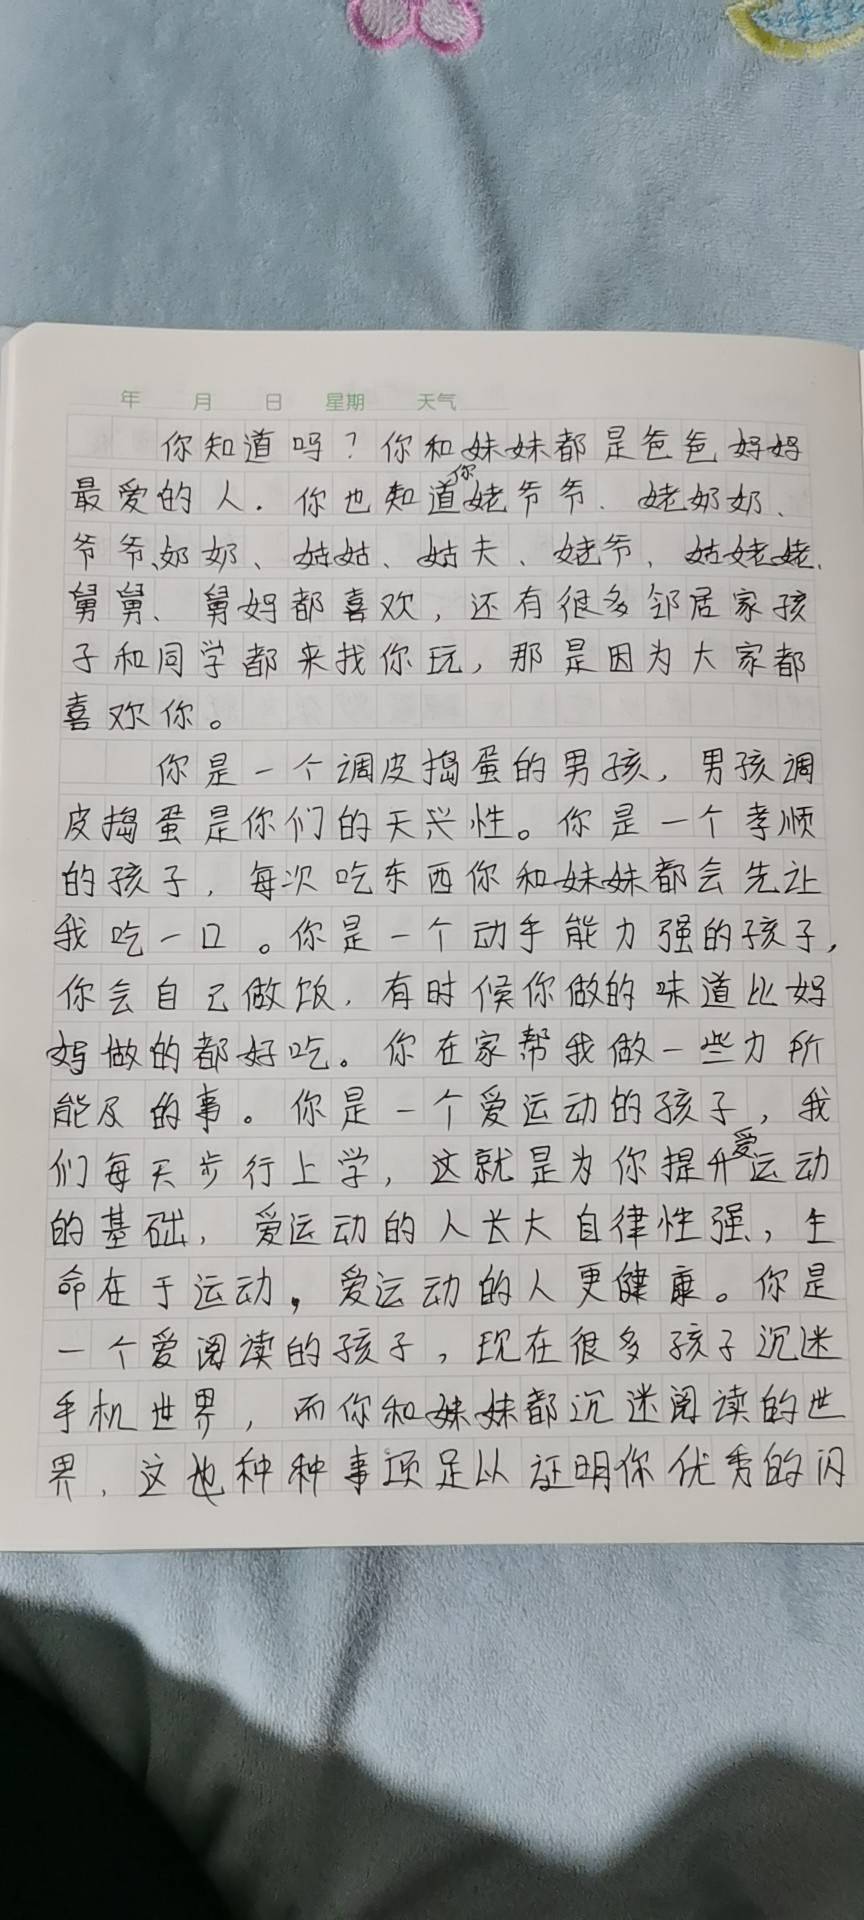 年 月 日 星期 天气
你知道吗？你和妹妹都是爸爸妈妈
最爱的人．你也知道你姥爷爷．姥奶奶、
爷爷、奶奶、姑姑、姑夫、姥爷，姑姥姥、
舅舅、舅妈都喜欢，还有很多邻居家孩
子和同学都来找你玩，那是因为大家都
喜欢你。
你是一个调皮捣蛋的男孩，男孩调
皮捣蛋是你们的天兴性。你是一个孝顺
的孩子，每次吃东西你和妹妹都会先让
我吃一口。你是一个动手能力强的孩子，
你会自己做饭．有时候你做的味道比妈
妈做的都好吃。你在家帮我做一些力所
能及的事。你是一个爱运动的孩子，我
们每天步行上学，这就是为你提升爱运动
的基础，爱运动的人长大自律性强，生
命在于运动，爱运动的人更健康。你是
一个爱阅读的孩子，现在很多孩子沉迷
手机世界，而你和妹妹都沉迷阅读的世
界，这也种种事项足以证明你优秀的闪